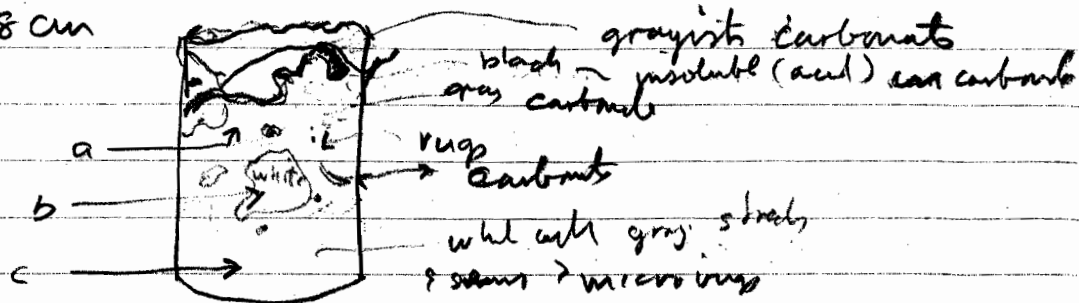 8 cm
grayish carbonate
black - insoluble (acid) carbonate
gray carbonate
a
vugs
carbonate
white
b
gray streaks
c
& seams > microvugs